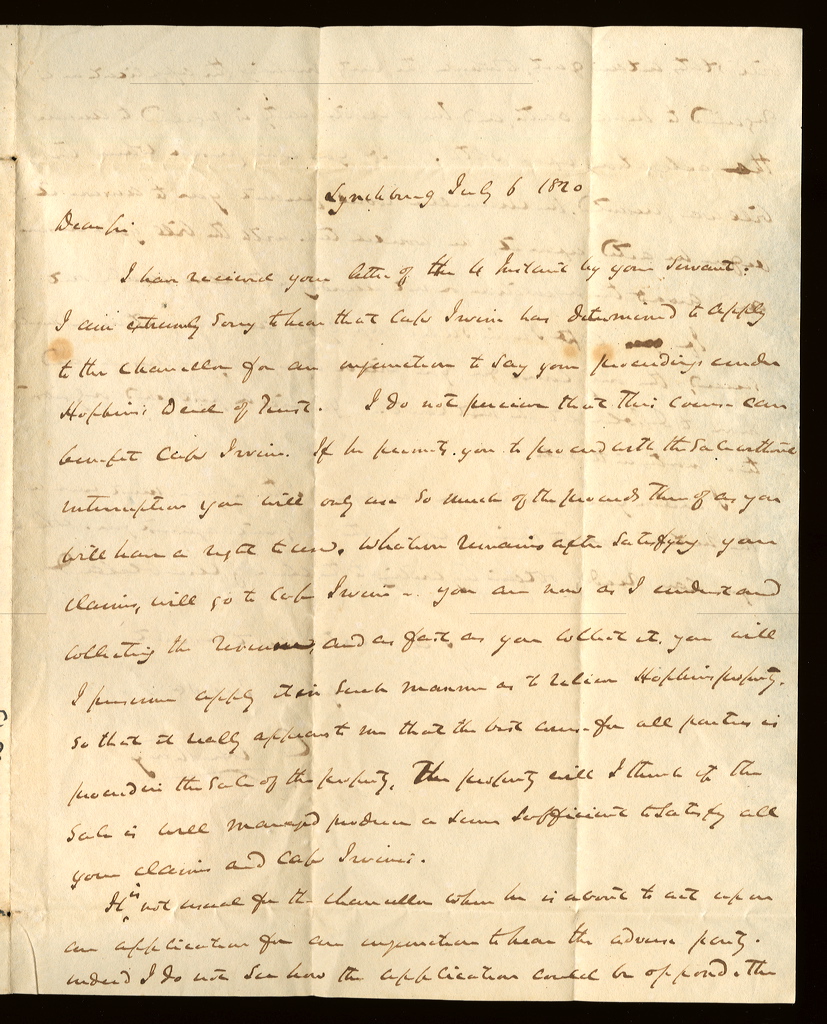 Lynchburg July 6 1820
Dear Sir
I have received your letter of the 4 Instant by your Servant.
I am extremely Sorry to hear that Capt Irvine has determined to apply
to the Chancellor for an injunction to Stay your proceedings under
Hopkins's Deed of Trust. I do not perceive that this course can
benefit Capt Irvine. If he permits you to proceed with the Sale without
interruption you will only use So much of the proceeds thereof as you
will have a right to use. Whatever remains after Satisfying your
claims, will go to Capt Irvine. you are now as I understand
collecting the revenue, and as fast as you collect it you will
I presume apply it in Such manner as to relieve Hopkins property.
So that it really appears to me that the best course for all parties is
proceed in the Sale of the property. The property will I think if the
Sale is well managed produce a Sum Sufficient to Satisfy all
your claims and Capt Irvine's.
It is not usual for the Chancellor when he is about to act upon
an application for an injunction to hear the adverse party.
indeed I do not See how the application could be opposed. the